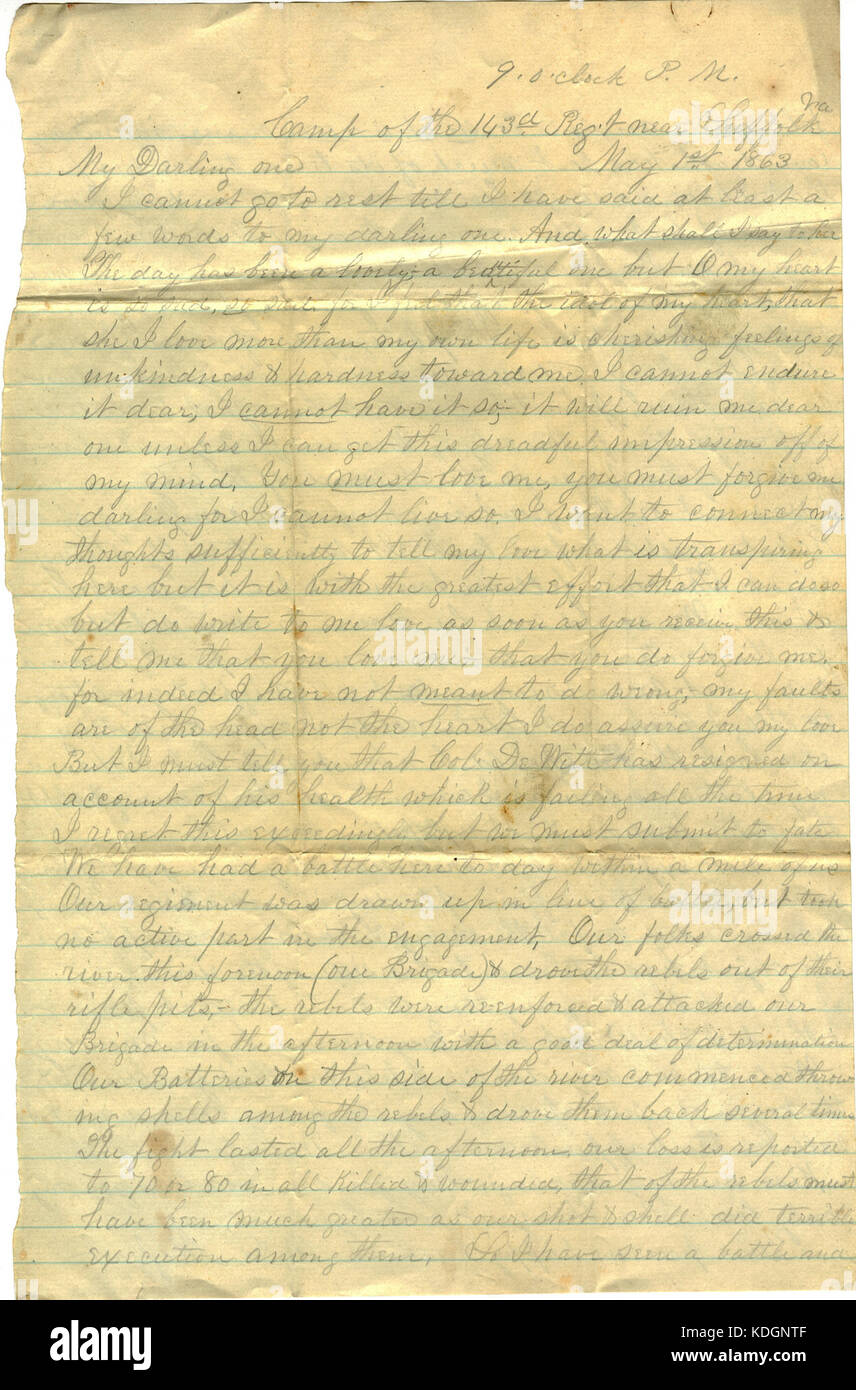 9. o'clock P. M.
Camp of the 143d Reg't near Suffolk Va
My Darling one May 1st 1863
I cannot go to rest till I have said at least a
few words to my darling one. And what shall I say to her
The day has been a lovely, a beautiful one but O my heart
is so sad, so sad. for I feel that the idol of my heart, that
she I love more than my own life is cherishing feelings of
unkindness & hardness toward me. I cannot endure
it dear, I cannot have it so;- it will ruin me dear
one unless I can get this dreadful impression off of
my mind. You must love me, you must forgive me
darling for I cannot live so. I want to connect my
thoughts sufficiently to tell my love what is transpiring
here but it is with the greatest effort that I can do so
but do write to me love as soon as you receive this &
tell me that you love me that you do forgive me.
for indeed I have not meant to do wrong, my faults
are of the head not the heart I do assure you my love
But I must tell you that Col. De Witt has resigned on
account of his health which is failing all the time
I regret this exceedingly but we must submit to fate
We have had a battle here to day within a mile of us
Our regiment was drawn up in line of battle, but took
no active part in the engagement. Our folks crossed the
river this forenoon (our Brigade) & drove the rebels out of their
rifle pits,- the rebels were reenforced & attacked our
Brigade in the afternoon with a good deal of determination
Our Batteries on this side of the river commenced throw
ing shells among the rebels & drove them back several times
The fight lasted all the afternoon, our loss is reported
to 70 or 80 in all killed & wounded, that of the rebels must
have been much greater as our shot & shell did terrible
execution among them. So I have seen a battle and
alamy
Image ID: KDGNTF
www.alamy.com